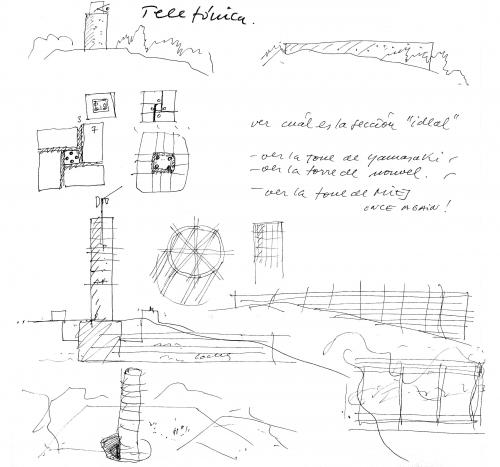 Telefónica.
ver cuál es la sección "ideal"
- ver la torre de Yamasaki
- ver la torre de nouvel.
- ver la torre de MIES
ONCE AGAIN!
3 7